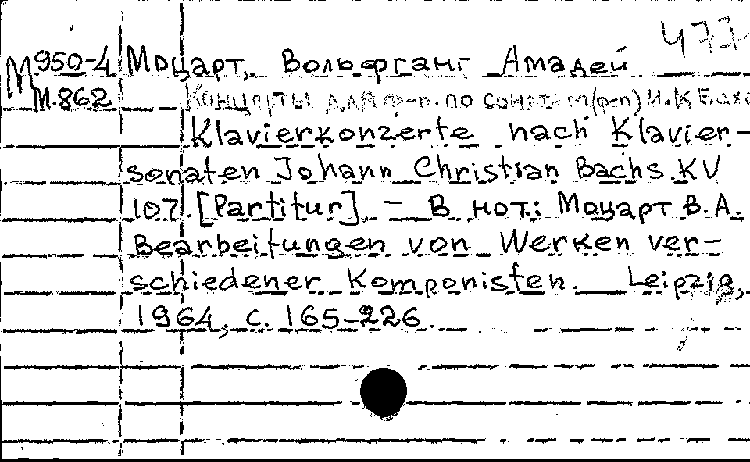 477
М 950-4 Моцарт, Вольфганг Амадей
М.862 Концерты для ф-п. по сонатам (ф-п) И.К Баха
Klavierkonzerte nach Klavier-
sonaten Johann Christian Bachs KV
107. [Partitur]. – В нот.: Моцарт В.А.
Bearbeitungen von Werken ver-
schiedener Komponisten. Leipzig,
1964, с. 165-226.